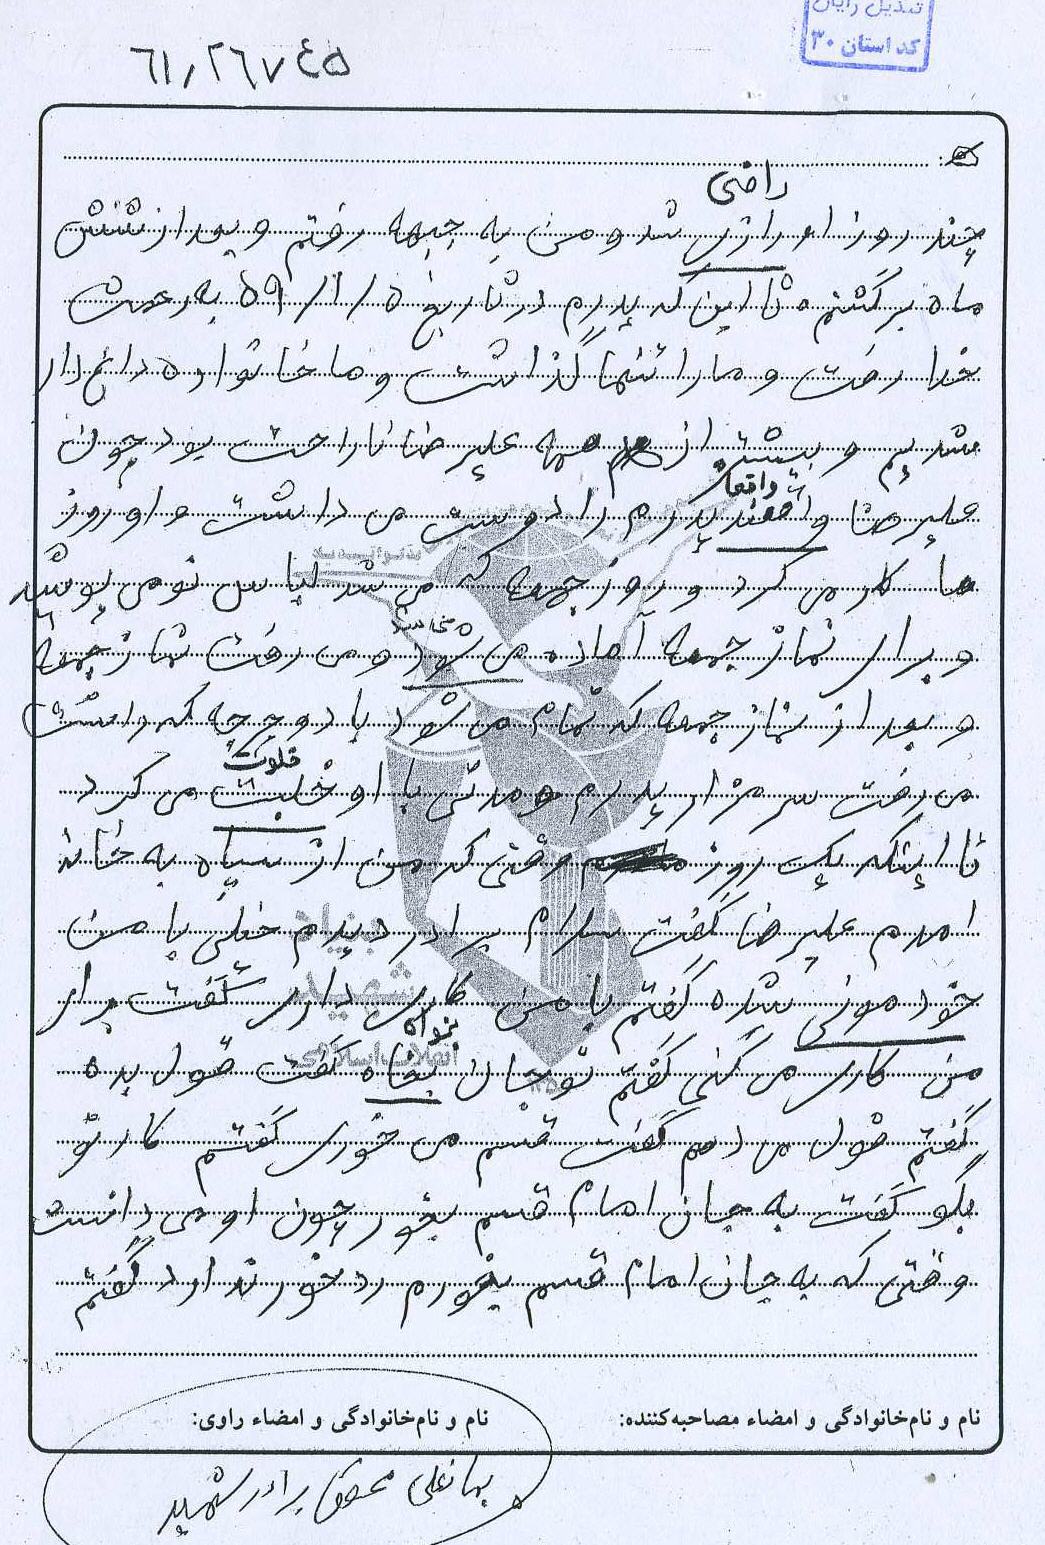 تبدیل رایان
کد استان ۳۰
۶۱٫۲۶۷۴۵
راضی
چند روز او را رازی شد و من به جبهه رفتم و بعد از شش
ماه برگشتم تا این که پدرم در تاریخ ۵/۱/۵۹ به رحمت
خدا رفت و ما را تنها گذاشت و ما خانواده داغ دار
شدیم و بیشتر از همه علیرضا ناراحت بود چون
واقعاً
علیرضا پدرم را دوست می داشت و او روز
ها کار می کرد و روز جمعه که می شد لباس نو می پوشید
و برای نماز جمعه آماده می شود و می رفت نماز جمعه
و بعد از نماز جمعه که تمام می شود با دوچرخه که داشت
خلوت
می رفت سر مزار پدرم و مدتی با او خلبت می کرد
تا اینکه یک روز وقتی که من از سپاه به خانه
امدم علیرضا گفت سلام برادر دیدم خیلی با من
خودمونی شده گفتم با من کاری داری گفت برای
بخواه
من کاری می کنی گفتم تو جان بخاه گفت قول بده
گفتم قول می دهم گفت قسم می خوری گفتم کار تو
بگو گفت به جان امام قسم بخور چون او می دانست
وقتی که به جان امام قسم بخورم رد خور ندارد گفتم
نام و نام‌خانوادگی و امضاء مصاحبه‌کننده:
نام و نام‌خانوادگی و امضاء راوی:
برادر شهید
بنیاد
شهید
انقلاب اسلامی